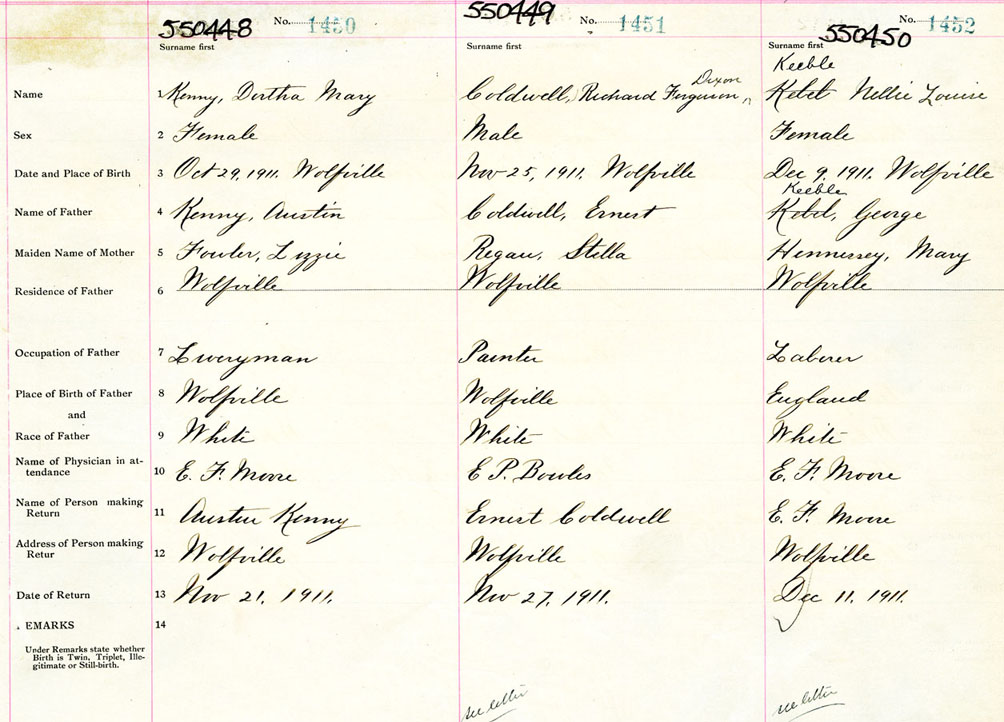 550448 No. 1450 550449 No. 1451 550450 No. 1452
Surname first Surname first Surname first
Keeble
Dixon
Name 1 Kenny, Dortha Mary Coldwell, Richard Ferguson Kebel Nellie Louise
Sex 2 Female Male Female
Date and Place of Birth 3 Oct 29, 1911. Wolfville Nov 25, 1911. Wolfville Dec 9. 1911. Wolfville
Keeble
Name of Father 4 Kenny, Austin Coldwell, Ernest Kebel, George
Maiden Name of Mother 5 Fowler, Lizzie Regan, Stella Hennessey, Mary
Residence of Father 6 Wolfville Wolfville Wolfville
Occupation of Father 7 Liveryman Painter Laborer
Place of Birth of Father 8 Wolfville Wolfville England
and
Race of Father 9 White White White
Name of Physician in at-
tendance 10 E. F. Moore E P. Bowles E. F. Moore
Name of Person making
Return 11 Austin Kenny Ernest Coldwell E. F. Moore
Address of Person making
Retur 12 Wolfville Wolfville Wolfville
Date of Return 13 Nov 21. 1911. Nov 27, 1911. Dec 11. 1911.
EMARKS 14
Under Remarks state whether
Birth is Twin, Triplet, Ille-
gitimate or Still-birth.
see letter see letter